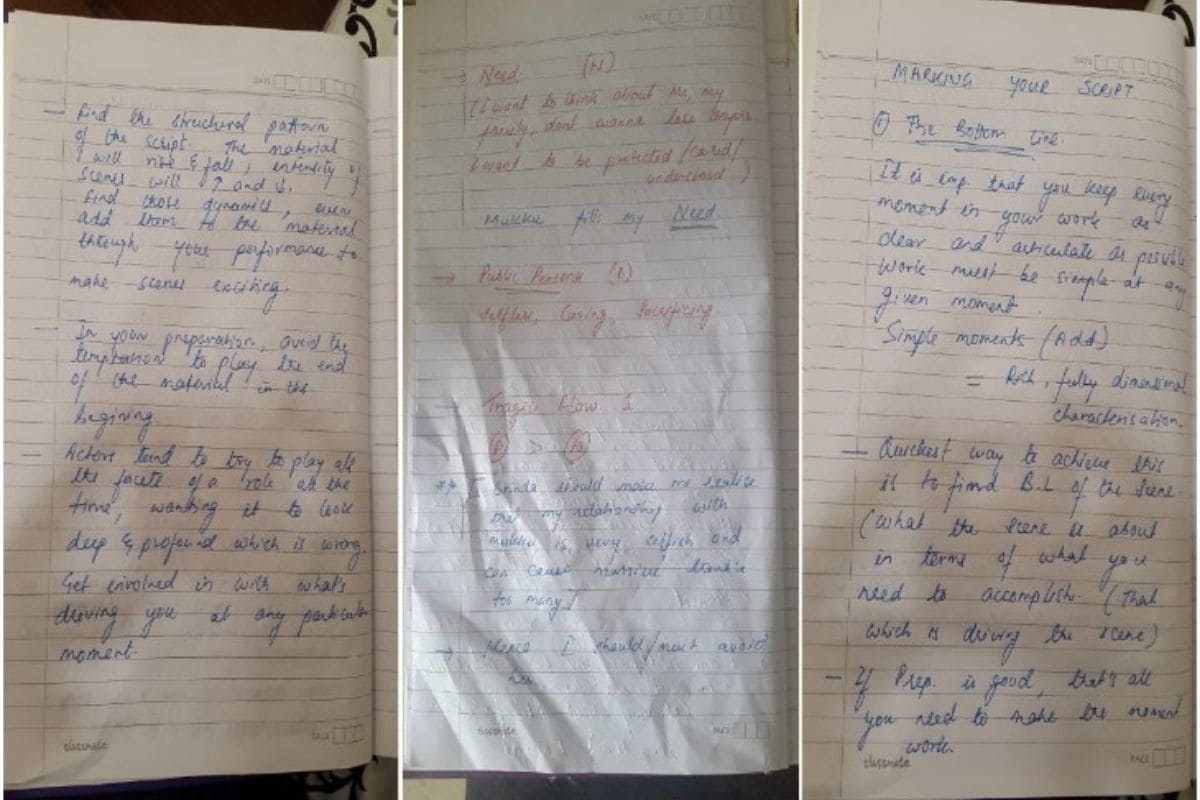 DATE
— Find the structural pattern
of the script. The material
will rise & fall, intensity of
scenes will ↑ and ↓.
Find those dynamics, even
add them to the material
through your performance to
make scenes exciting.
— In your preparation, avoid the
temptation to play the end
of the material in the
begining
— Actors tend to try to play all
the facets of a role all the
time, wanting it to look
deep & profound which is wrong.
Get involned in with what's
driving you at any particular
moment.
classmate
PAGE
DATE
→ Need (N)
(I want to think about me, my
family, dont wanna lose anyone
I want to be protected / cared /
understood)
fills my Need
→ Public Persona (P)
Selfless, Caring, Sacrificing
→ Tragic Flaw
P >
** [ should make me realise
that my relationship with
is very selfish and
can cause massive trouble
too many]
→ Hence I should/must avoid
her
classmate
PAGE
DATE
MARKING YOUR SCRIPT
① The Bottom Line.
It is imp. that you keep every
moment in your work as
clear and articulate as possible
Work must be simple at any
given moment.
Simple moments (Add)
= Rich, fully dimensional
characterisation.
— Quickest way to achieve this
is to find B.L of the scene.
(What the scene is about
in terms of what you
need to accomplish. (That
which is driving the scene)
— If Prep. is good, that's all
you need to make the moment
work.
classmate
PAGE